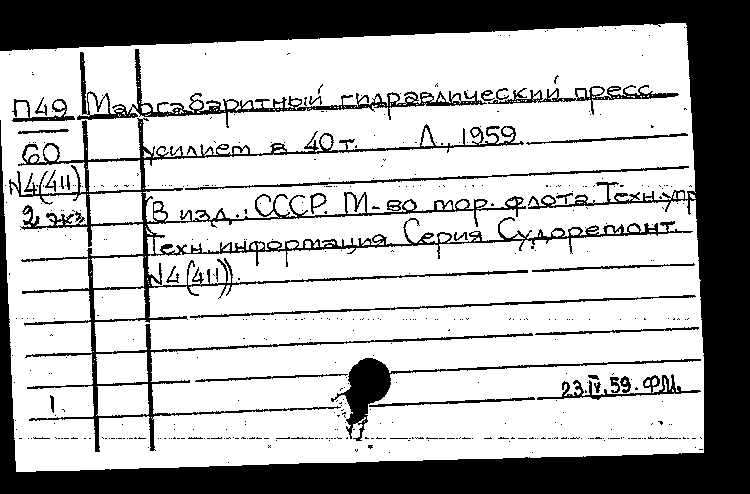 П49 Малогабаритный гидравлический пресс
60 усилием в 40 т. Л., 1959.
N4(411)
2 экз (В изд.: СССР. М-во мор. флота. Техн. упр
Техн. информация. Серия Судоремонт.
N4(411)).
23.IV.59. ФМ.
1.